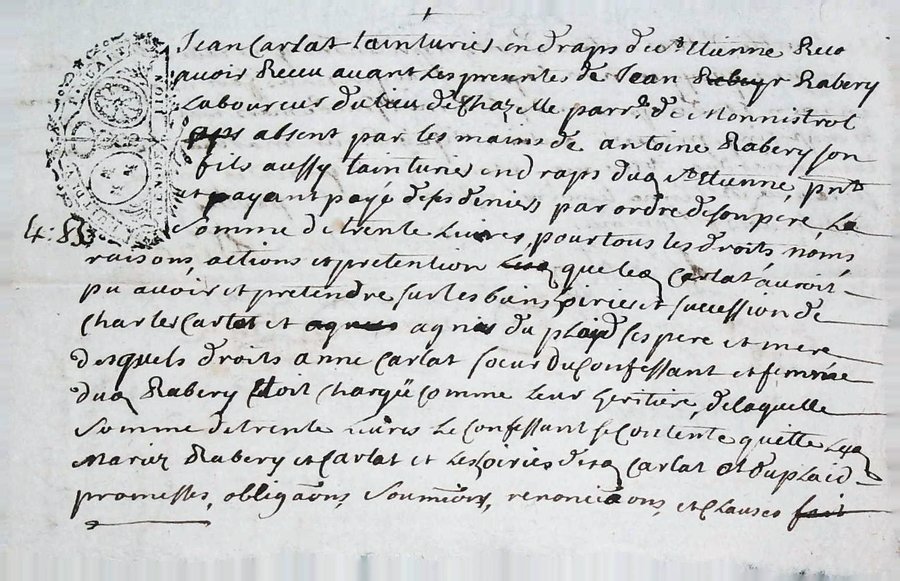 Jean Carlat tainturier en draps de St. Etienne Reco
avoir Receu avant les presente de Jean Rabeyr Rabery
Laboureur du lieu de Chazelle parr. de Monnistrol
absent par les mains de antoine Rabery son
fils aussy tainturier en draps dud St. Etienne, pnt
et payant payé de ses deniers par ordre de son pere, La
4:85 Somme de trente Livres, pour tous les droits noms
raisons, actions et pretention que led Carlat auroit
pu avoir et pretendre sur les biens hoiries et succession de
Charles Carlat et agnes du plaid ses pere et mere
desquels droits anne Carlat soeur du Confessant et femme
dud Rabery Etoit chargée Comme leur heritiere, de laquelle
Somme de trente Livres Le Confessant se Contente quitte Lesd
Mariez Rabery et Carlat et les hoiries desd Carlat et duplaid
promesses, obligaons, soumions, renonciaons, et Clauses fait